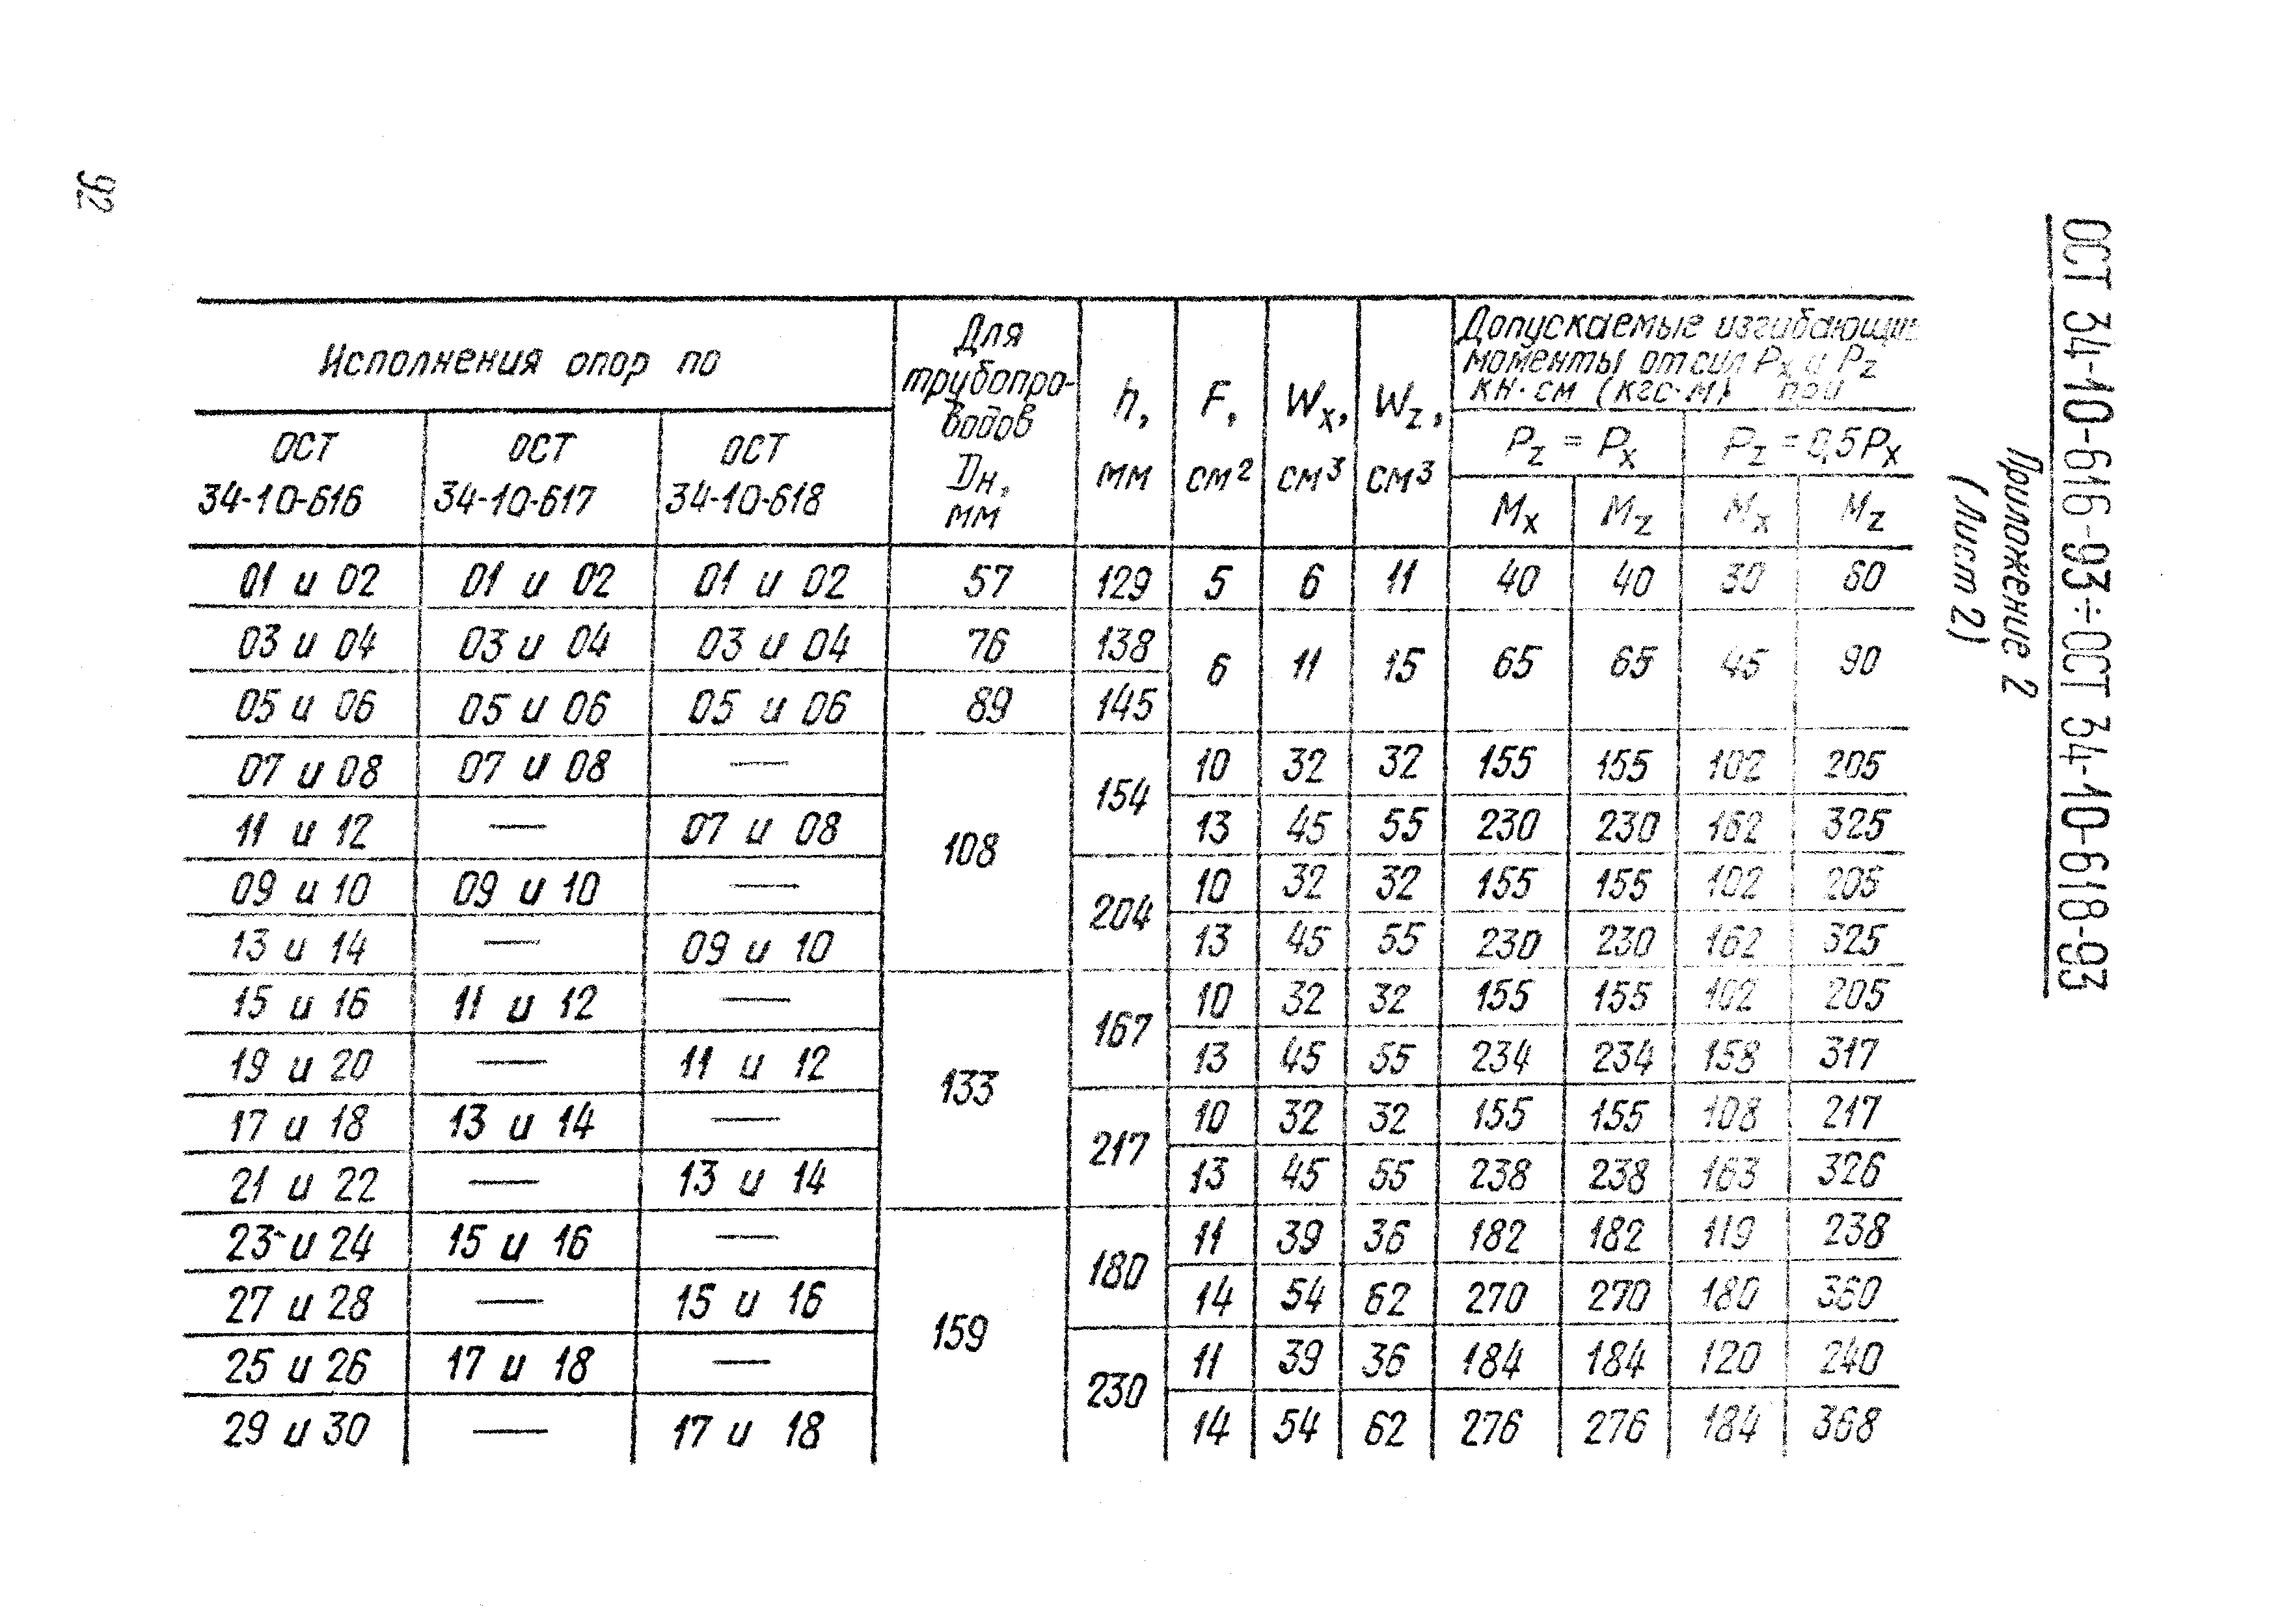 92
ОСТ 34-10-616-93÷ОСТ 34-10-618-93
Приложение 2
(Лист 2)
Исполнения опор по
Для трубопро-водов Dн, мм
h, мм
F, см²
Wx, см³
Wz, см³
Допускаемые изгибающие
моменты от сил Px и Pz
кН·см (кгс·м) при
ОСТ 34-10-616
ОСТ 34-10-617
ОСТ 34-10-618
Pz = Px
Pz = 0,5Px
Mx Mz Mx Mz
01 и 02 01 и 02 01 и 02 57 129 5 6 11 40 40 30 60
03 и 04 03 и 04 03 и 04 76 138 6 11 15 65 65 45 90
05 и 06 05 и 06 05 и 06 89 145
07 и 08 07 и 08 — 108 154 10 32 32 155 155 102 205
11 и 12 — 07 и 08 13 45 55 230 230 162 325
09 и 10 09 и 10 — 204 10 32 32 155 155 102 205
13 и 14 — 09 и 10 13 45 55 230 230 162 325
15 и 16 11 и 12 — 133 167 10 32 32 155 155 102 205
19 и 20 — 11 и 12 13 45 55 234 234 158 317
17 и 18 13 и 14 — 217 10 32 32 155 155 108 217
21 и 22 — 13 и 14 13 45 55 238 238 163 326
23 и 24 15 и 16 — 159 180 11 39 36 182 182 119 238
27 и 28 — 15 и 16 14 54 62 270 270 180 360
25 и 26 17 и 18 — 230 11 39 36 184 184 120 240
29 и 30 — 17 и 18 14 54 62 276 276 184 368